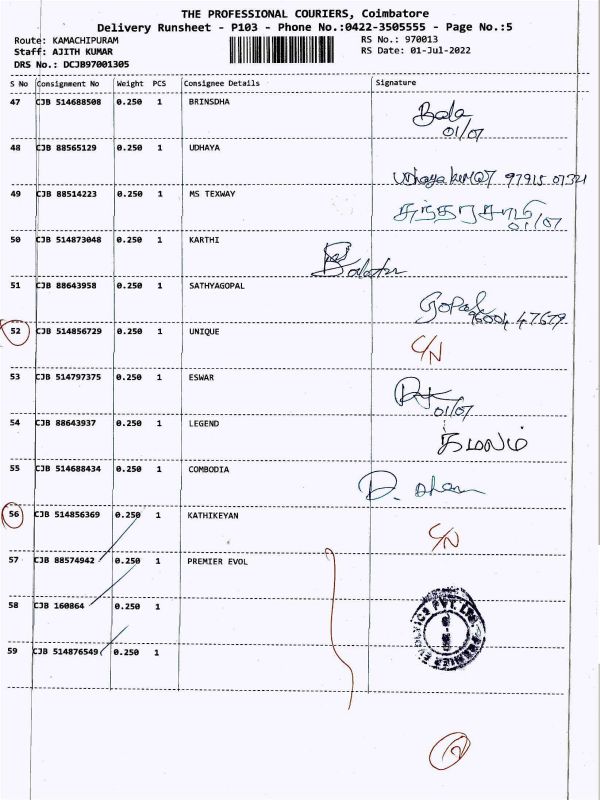 THE PROFESSIONAL COURIERS, Coimbatore
Delivery Runsheet - P103 - Phone No.:0422-3505555 - Page No.:5
Route: KAMACHIPURAM
RS No.: 970013
Staff: AJITH KUMAR
RS Date: 01-Jul-2022
DRS No.: DCJB97001305
S No Consignment No Weight PCS Consignee Details Signature
47 CJB 514688508 0.250 1 BRINSDHA Bala
01/07
48 CJB 88565129 0.250 1 UDHAYA
Udhayakumar 97915 07321
49 CJB 88514223 0.250 1 MS TEXWAY
01/07
50 CJB 514873048 0.250 1 KARTHI
51 CJB 88643958 0.250 1 SATHYAGOPAL
Gopal 47679
52 CJB 514856729 0.250 1 UNIQUE C/N
53 CJB 514797375 0.250 1 ESWAR
01/07
54 CJB 88643937 0.250 1 LEGEND
கமலம்
55 CJB 514688434 0.250 1 COMBODIA
56 CJB 514856369 0.250 1 KATHIKEYAN
C/N
57 CJB 88574942 0.250 1 PREMIER EVOL
58 CJB 160864 0.250 1
PREMIER EVOLVICS PVT. LTD.
59 CJB 514876549 0.250 1